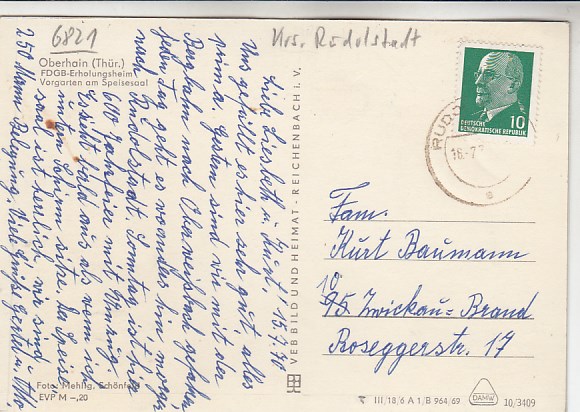 6821
Krs. Rudolstadt
Oberhain (Thür.)
FDGB-Erholungsheim
Vorgarten am Speisesaal
Liebe Liesbeth u. Kurt! 15.7.70
Uns gefällt es hier sehr gut, alles
prima. Gestern sind wir mit der
Bergbahn nach Oberweißbach gefahren
jeden Tag geht es woanders hin morgen
nach Rudolstadt. Sonntag ist hier
600 Jahrfeier mit Umzug.
Gesicht bald aus als wenn ich
unterm sitze. Der Speise-
saal ist herrlich wir sind
250 Mann Belegung. Viele Grüße Gertrud u. Otto
Foto: Mehlig, Schönfeld
EVP M –,20
VEB BILD UND HEIMAT · REICHENBACH i. V.
DEUTSCHE
DEMOKRATISCHE REPUBLIK
10
RUDO
16.-7.7
Fam.
Kurt Baumann
95 Zwickau-Brand
Roseggerstr. 17
III/18/6 A 1/B 964/69
DAMW
10/3409